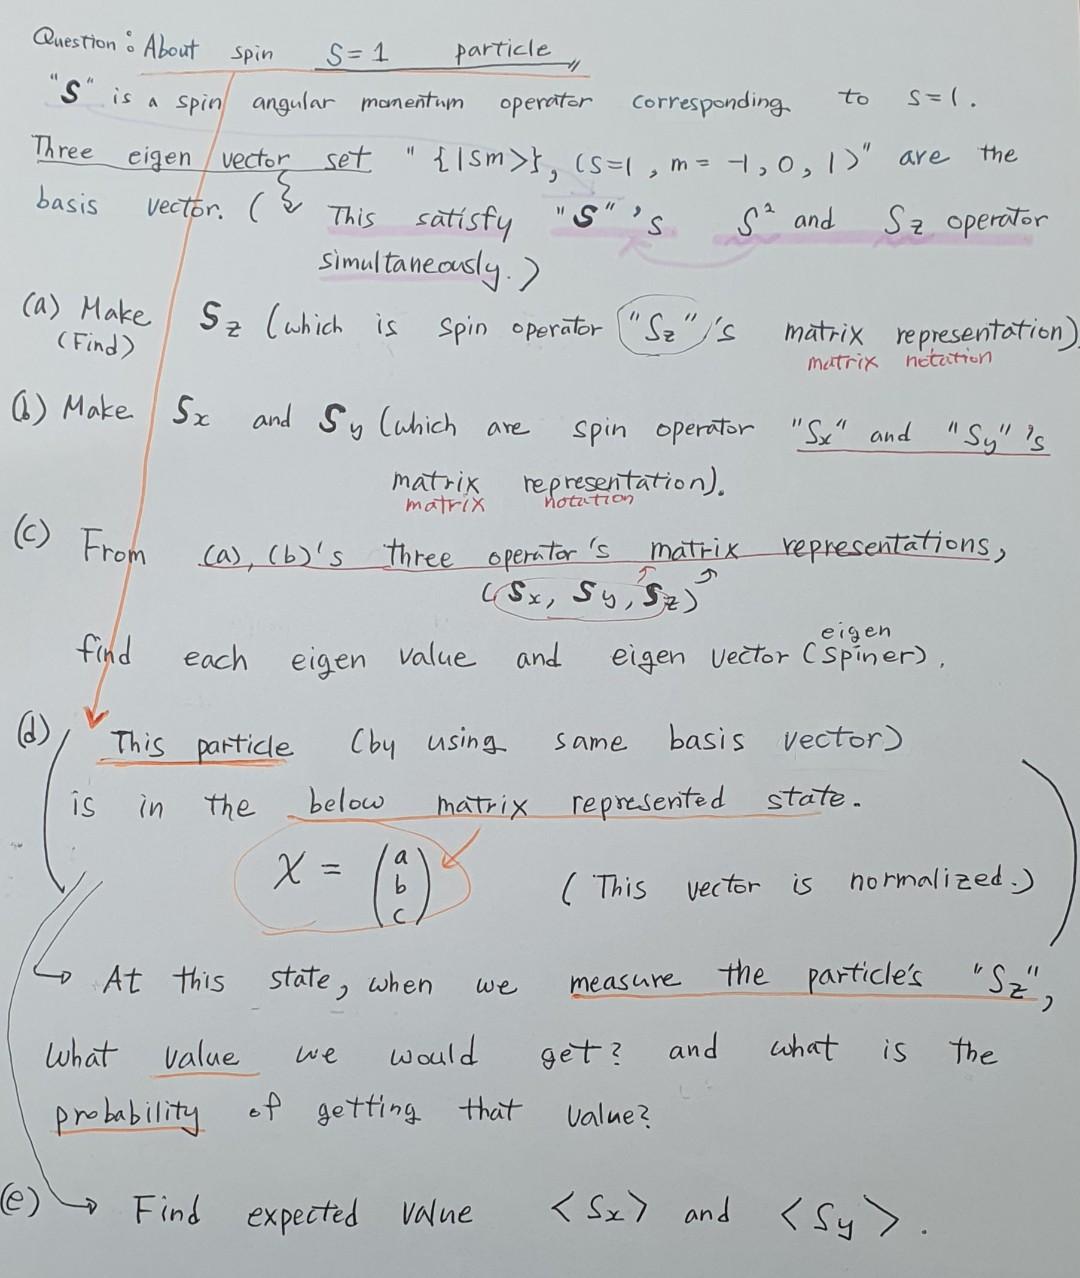 Question : About spin S = 1 particle
"S" is a spin angular momentum operator corresponding to s=1.
Three eigen vector set "{|sm>}, (s=1, m = -1, 0, 1)" are the
basis vector. ( This satisfy "S"'s S² and Sz operator
simultaneously. )
(a) Make Sz (which is spin operator "Sz"'s matrix representation)
(Find) matrix notation
(b) Make Sx and Sy (which are spin operator "Sx" and "Sy"'s
matrix representation).
matrix notation
(c) From (a), (b)'s three operator's matrix representations,
(Sx, Sy, Sz)
find each eigen value and eigen vector (eigen spiner).
(d) This particle (by using same basis vector)
is in the below matrix represented state.
χ = (a b c) ( This vector is normalized. )
→ At this state, when we measure the particle's "Sz",
what value we would get? and what is the
probability of getting that value?
(e) → Find expected value <Sx> and <Sy>.